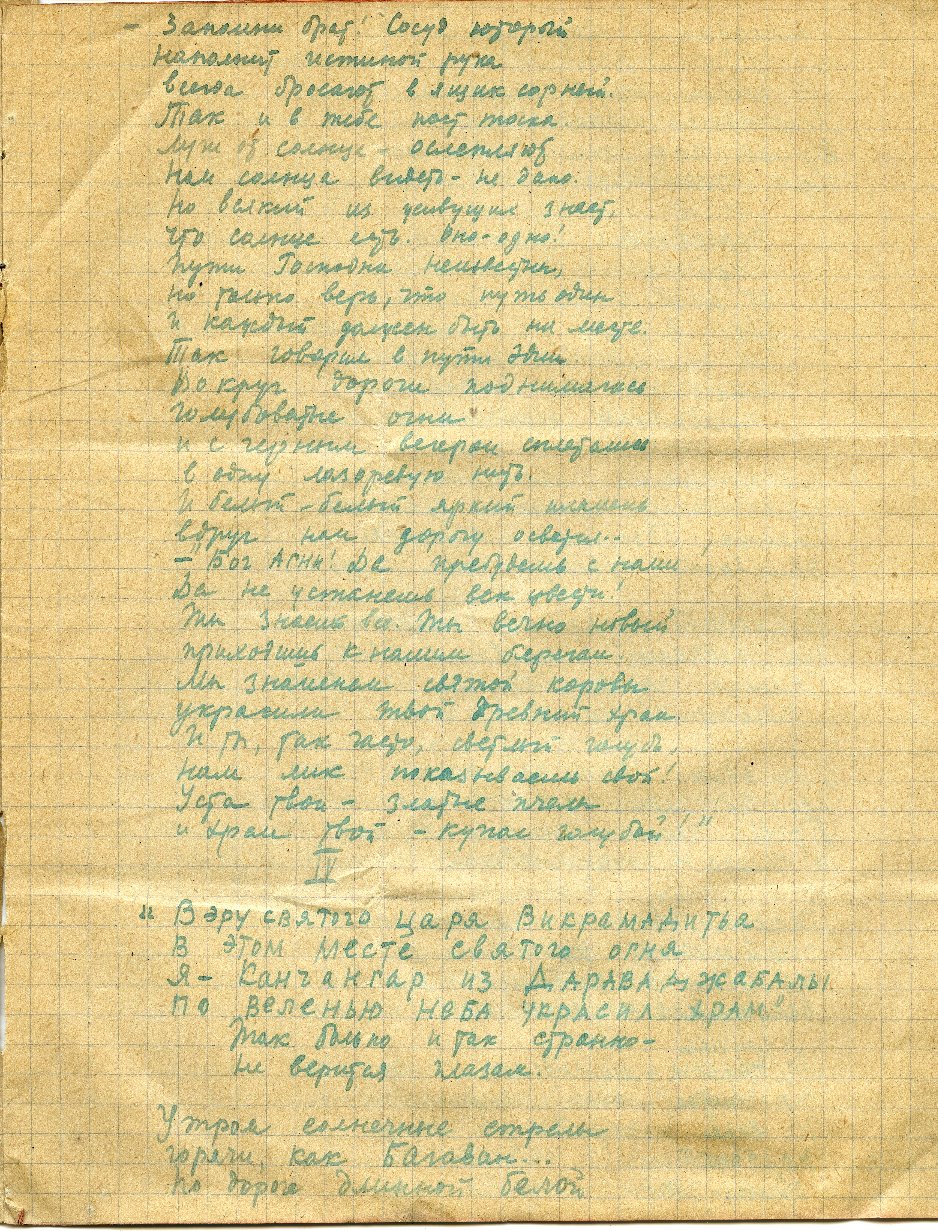 – Запомни брат! Сосуд который
наполнит истиной рука
всегда бросают в ящик сорный.
Так и в тебе поет тоска.
Лучи от солнца – ослепляют
Нам солнца видеть – не дано.
Но всякий из живущих знает,
что солнце есть. Оно – одно!
Пути Господна неизвестны,
но только верь, что путь один
И каждый должен быть на месте.
Так говорил в пути Эдин.
Вокруг дороги поднимались
голубоватые огни
и с черным вечером сплетались
в одну лазоревую нить.
И белый – белый яркий пламень
вдруг нам дорогу осветил..
– "Бог Агни! Да пребудешь с нами
Да не устанешь век цвести!
Ты знаешь все. Ты вечно новый
приходишь к нашим берегам.
Мы знаменем святой коровы
украсили твой древний храм.
И ты, так часто, светлый голубь,
нам лик показываешь свой!
Уста твои – златые пчелы
и храм твой – купол голубой!"
IV
"В эру святого царя Викрамадитьа
В этом месте святого огня
Я – Канчангар из Дараваджабалы
По веленью неба украсил храм"
Так больно и так странно –
не верится глазам.
Утром солнечные стрелы
горячи, как Багаван...
по дороге длинной белой